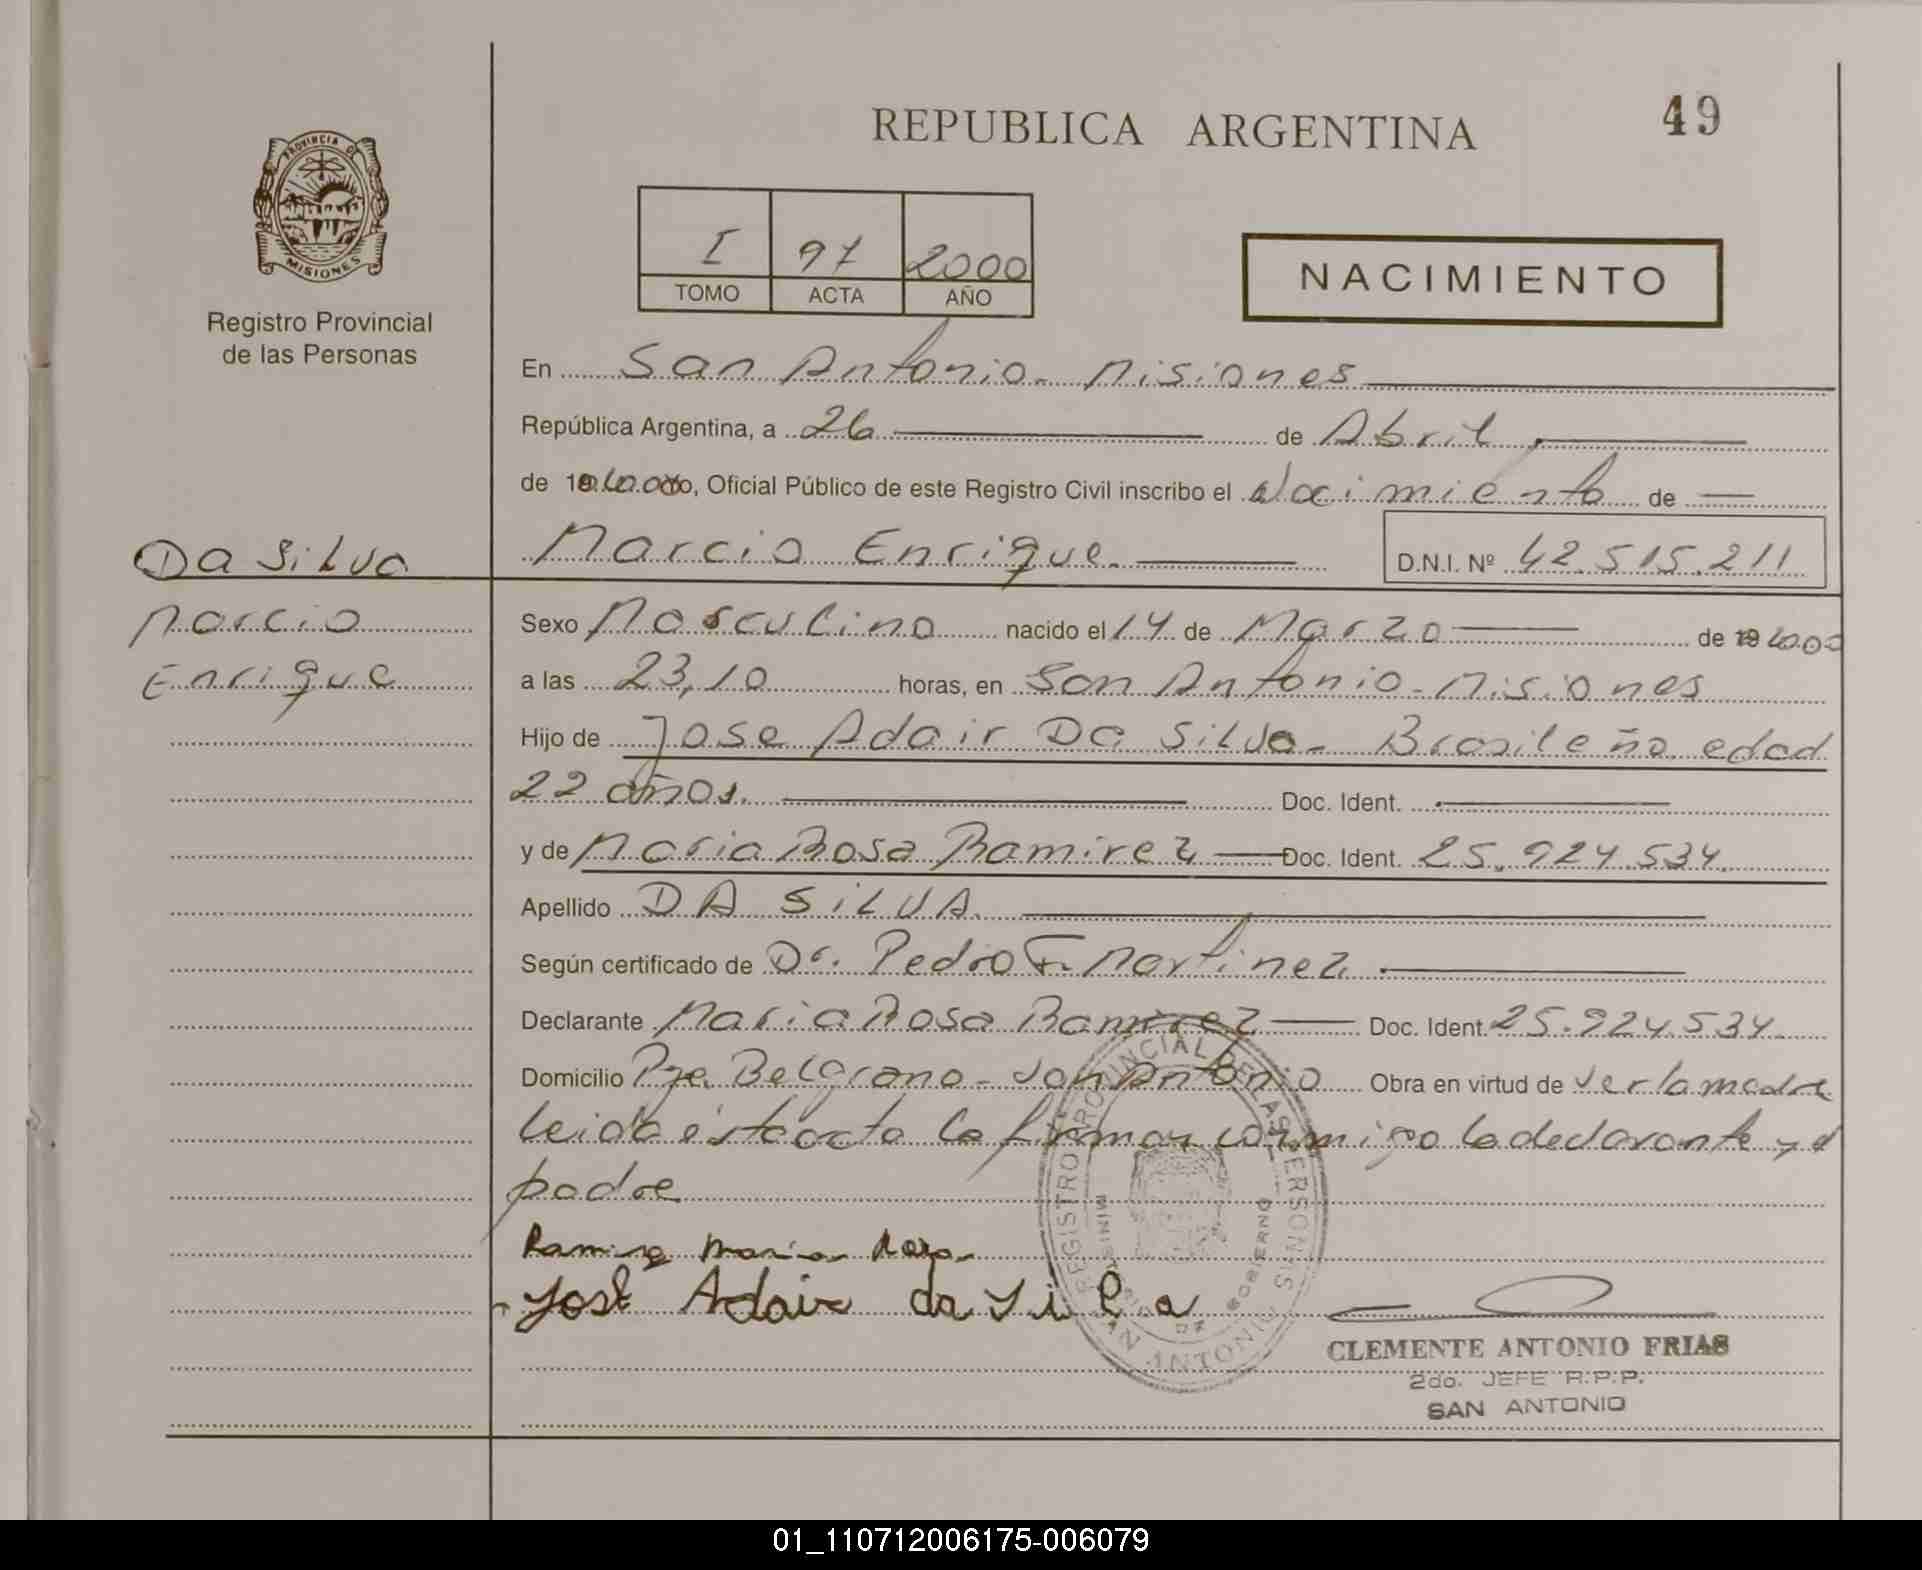 REPUBLICA ARGENTINA
49
PROVINCIA DE
MISIONES
Registro Provincial
de las Personas
I 97 2000
TOMO ACTA AÑO
NACIMIENTO
En San Antonio - Misiones
República Argentina, a 26 de Abril
de 2000, Oficial Público de este Registro Civil inscribo el Nacimiento de
Da Silva
Marcio Enrique. D.N.I. Nº 42.515.211
Marcio
Enrique
Sexo Masculino nacido el 14 de Marzo de 19 2000
a las 23,10 horas, en San Antonio - Misiones
Hijo de Jose Adair Da Silva - Brasileño edad
22 años. Doc. Ident.
y de Maria Rosa Ramirez Doc. Ident. 25.924.534.
Apellido DA SILVA.
Según certificado de Dr. Pedro F. Martinez
Declarante Maria Rosa Ramirez Doc. Ident. 25.924.534.
Domicilio Pje. Belgrano - San Antonio Obra en virtud de ser la madre
leida ésta acta la firman conmigo la declarante y el
padre
Ramirez Maria Rosa
José Adair da Silva
REGISTRO PROVINCIAL DE LAS PERSONAS
MINISTERIO DE GOBIERNO
SAN ANTONIO
CLEMENTE ANTONIO FRIAS
2do. JEFE R.P.P.
SAN ANTONIO
01_110712006175-006079